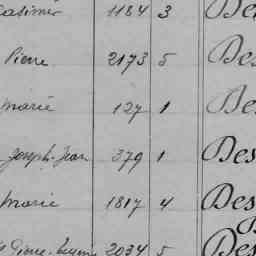 Casimir 1184 3 De
Pierre 2173 5 Des
Marie 127 1 De
Joseph-Jean 379 1 Des
Marie 1817 4 Des
Pierre-Eugène 2034 5 Des